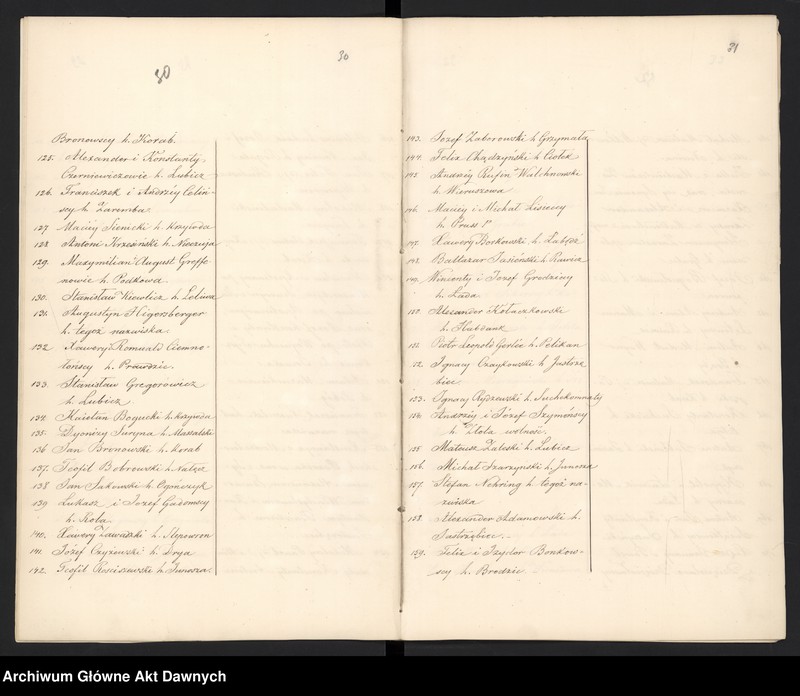 30
80
Bronowscy h. Korab.
125. Alexander i Konstanty
Czerniewiczowie h. Lubicz
126. Franciszek i Andrzéy Celiń-
scy h. Zaremba
127 Maciéy Sienicki h. Krzywda
128 Antoni h. Nieczuja
129. Maxymilian August Greffe
nowie h. Podkowa
130. Stanisław Kiewlicz h. Leliwa
131. Augustyn Higersberger
h. tegoż nazwiska.
132 Xawery Romuald Ciemno-
łońscy h. Prawdzic.
133. Stanisław Gregorowicz
h. Lubicz
134. Kaietan Bogucki h. Krzywda
135. Dyonizy Juryna h. Massalski
136 Jan Bronowski h. Korab
137. Teofil Bobrowski h. Nałęcz
138 Jan Sakowski h. Ogończyk
139 Łukasz i Jozef Gadomscy
h. Rola
140. Xawery Zawadzki h. Slepowron
141. Józef Czyżewski h. Drya
142. Teofil Rościszewski h. Junosza.
31
143. Jozef Zaborowski h. Grzymała
144. Felix Chądzyński h. Ciołek
145. Andrzéy Rufin Walchnowski
h. Wieruszowa
146. Maciey i Michał Lisieccy
h. Pruss 1º
147. Xawery Borkowski h. Łabędź
148. Baltazar Jasieński h. Rawicz
149. Wincenty i Jozef Grodziccy
h. Łada
150. Alexander Kołaczkowski
h. Habdank
151. Piotr Leopold h. Pelikan
152. Ignacy Czaykowski h. Jastrzę
biec
153. Ignacy Ryszewski h. Suchekomnaty
154. Andrzéy i Józef Szymińscy
h. Złota wolność.
155. Mateusz Zaleski h. Lubicz
156. Michał Szarzyński h. Junosza
157. Stefan Nehring h. tegoż na-
zwiska
158. Alexander Adamowski h.
Jastrzębiec. -
159. Felix i Izydor Bonkow-
scy h. Brodzic.
Archiwum Główne Akt Dawnych